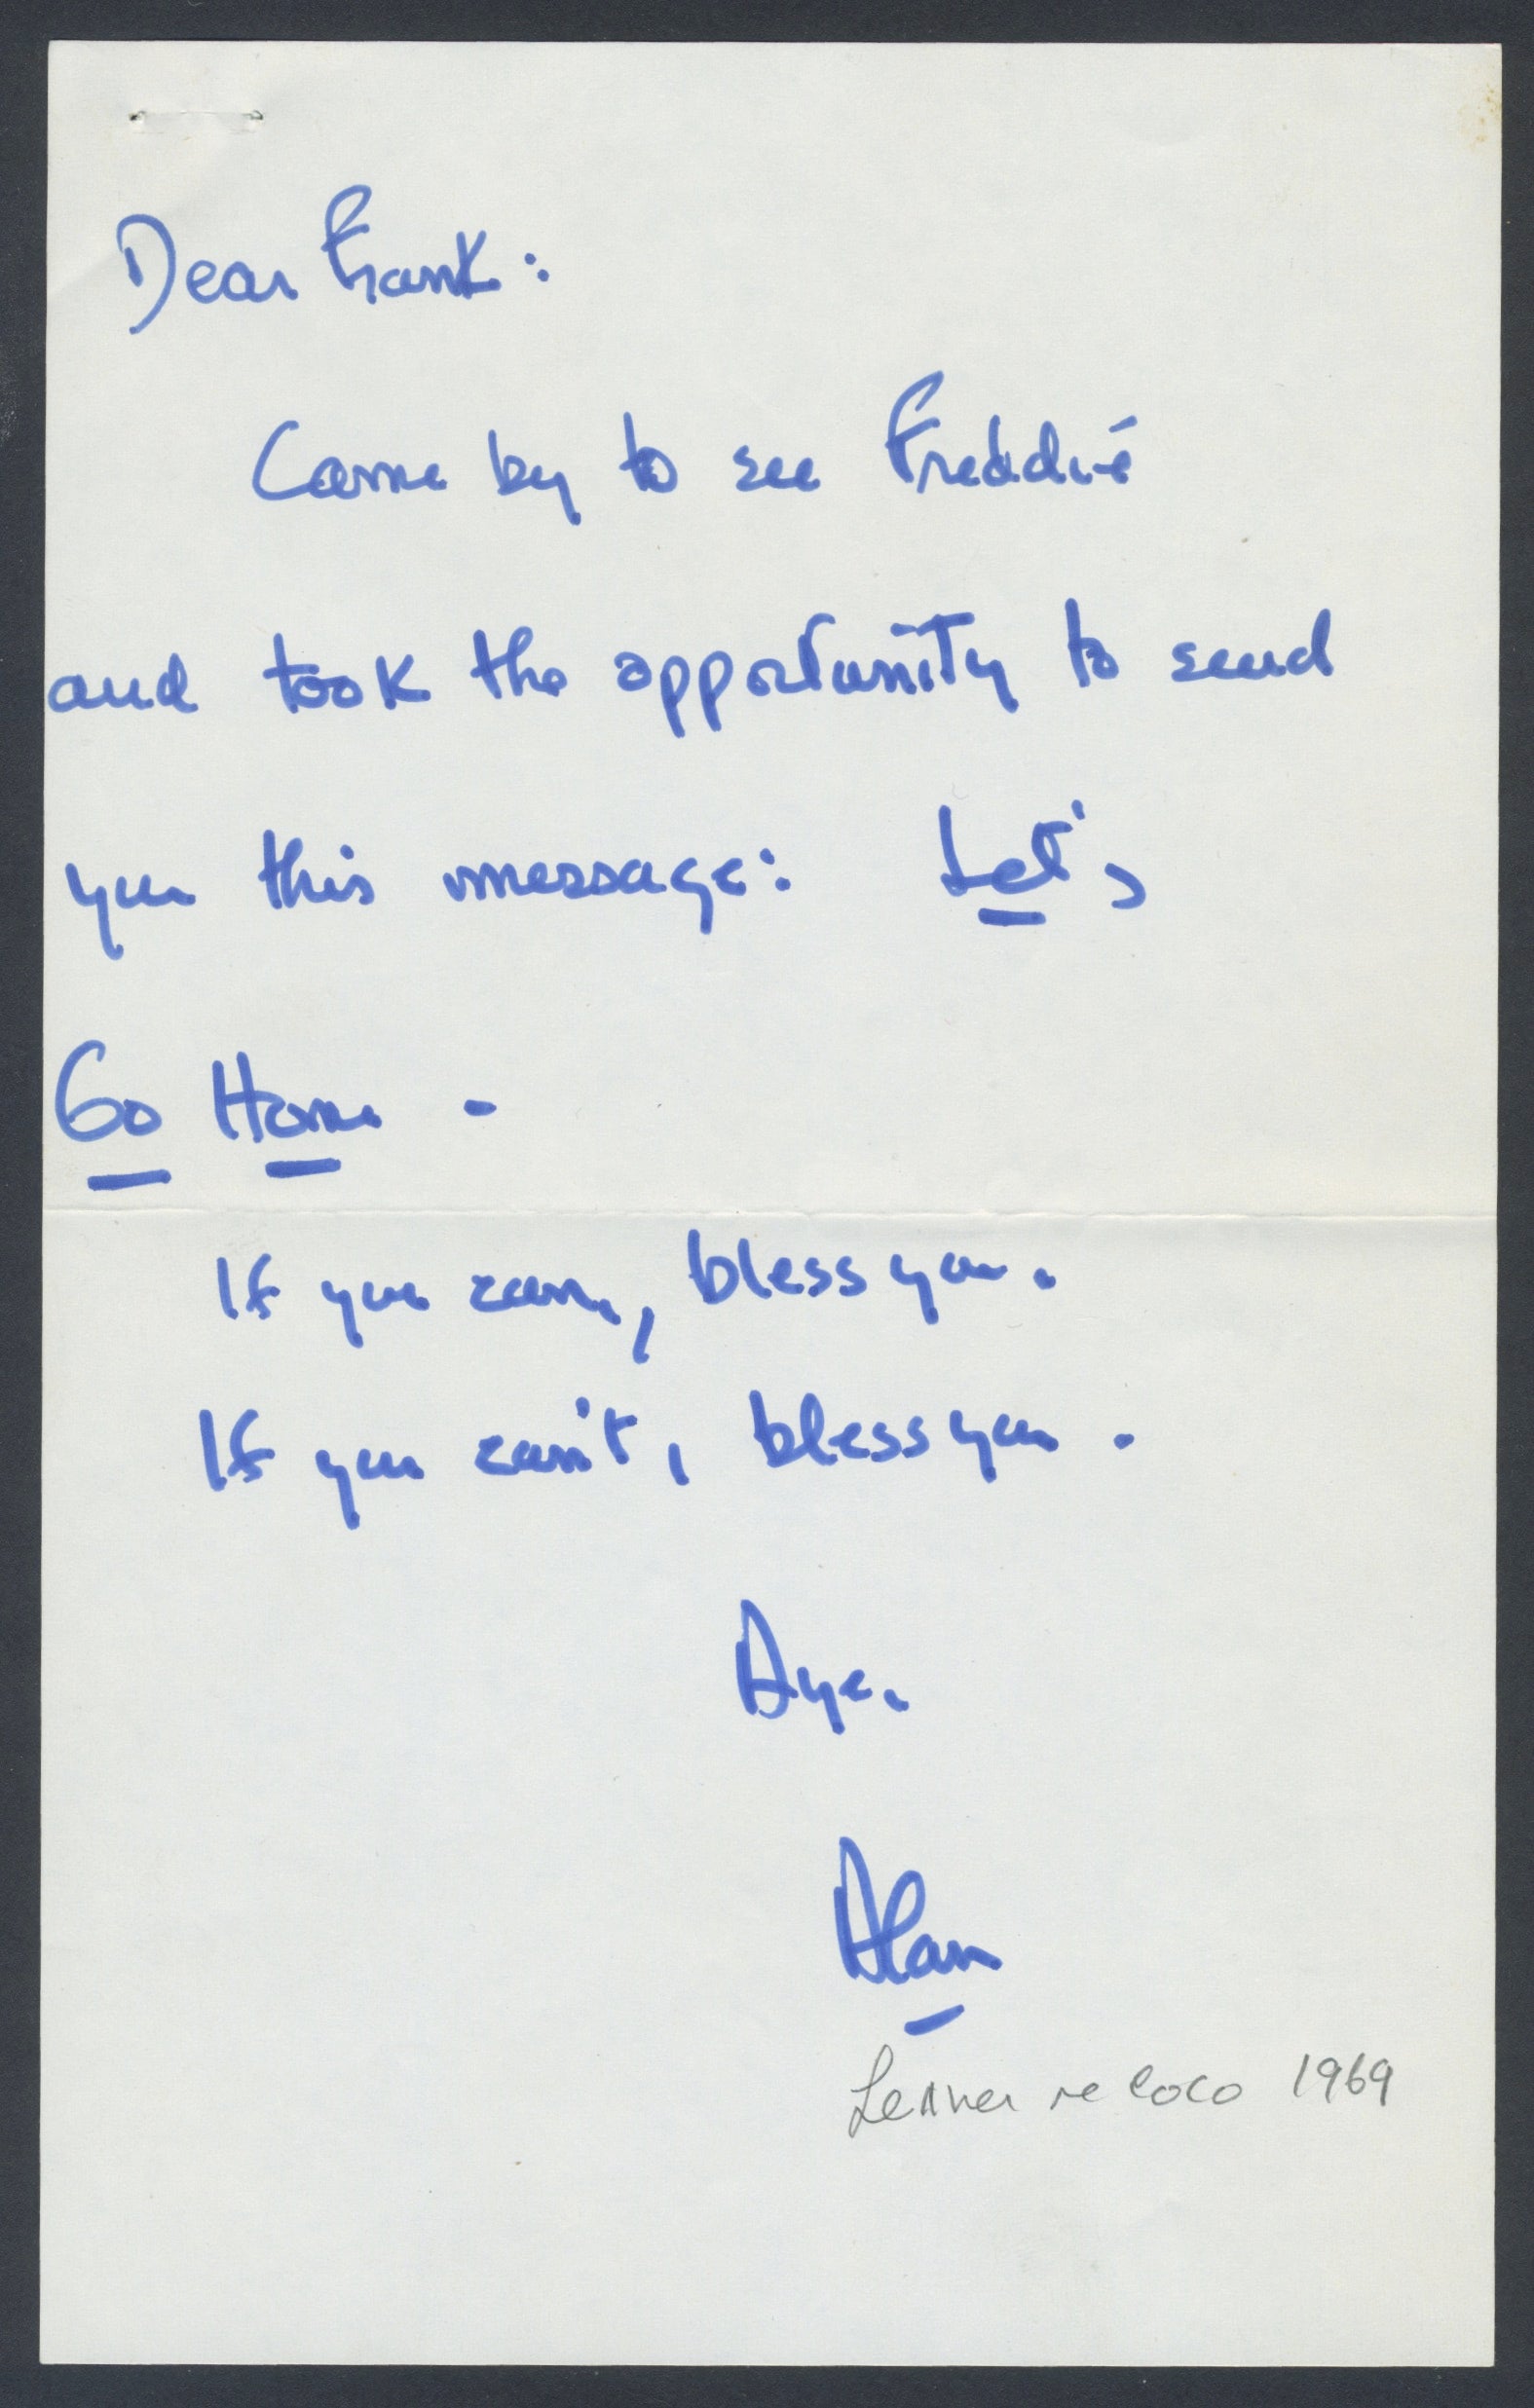 Dear Frank:
Came by to see Freddie
and took the opportunity to send
you this message: Let's
Go Home -
If you can, bless you.
If you can't, bless you.
Aye.
Alan
Lerner re Coco 1969